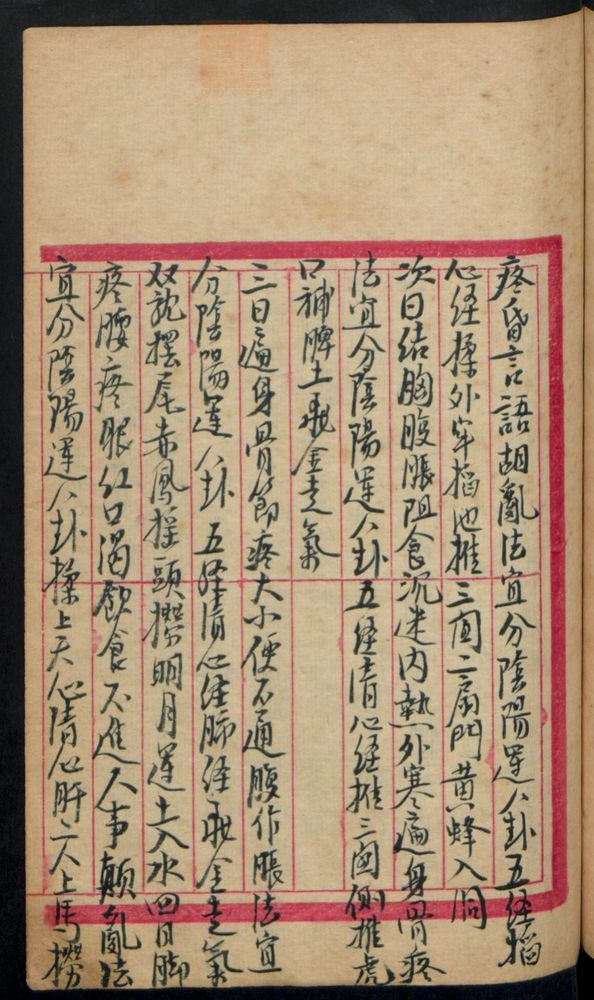 疼昏言語胡亂法宜分陰陽運八卦五经掐
心经揉外牢掐池推三関二扇門黄蜂入洞
次日结胸腹脹阻食沉迷内熱外寒遍身骨疼
法宜分陰陽運八卦五经清心经推三関側推虎
口補脾土飛金走氣
三日遍身骨節疼大小便不通腹作脹法宜
分陰陽運八卦五经清心经肺经飛金走氣
双龍摆尾赤鳳摇頭撈明月運土入水四日脚
疼腰疼眼红口渴飲食不進人事顛亂法
宜分陰陽運八卦揉上天心清心肝二人上馬撈